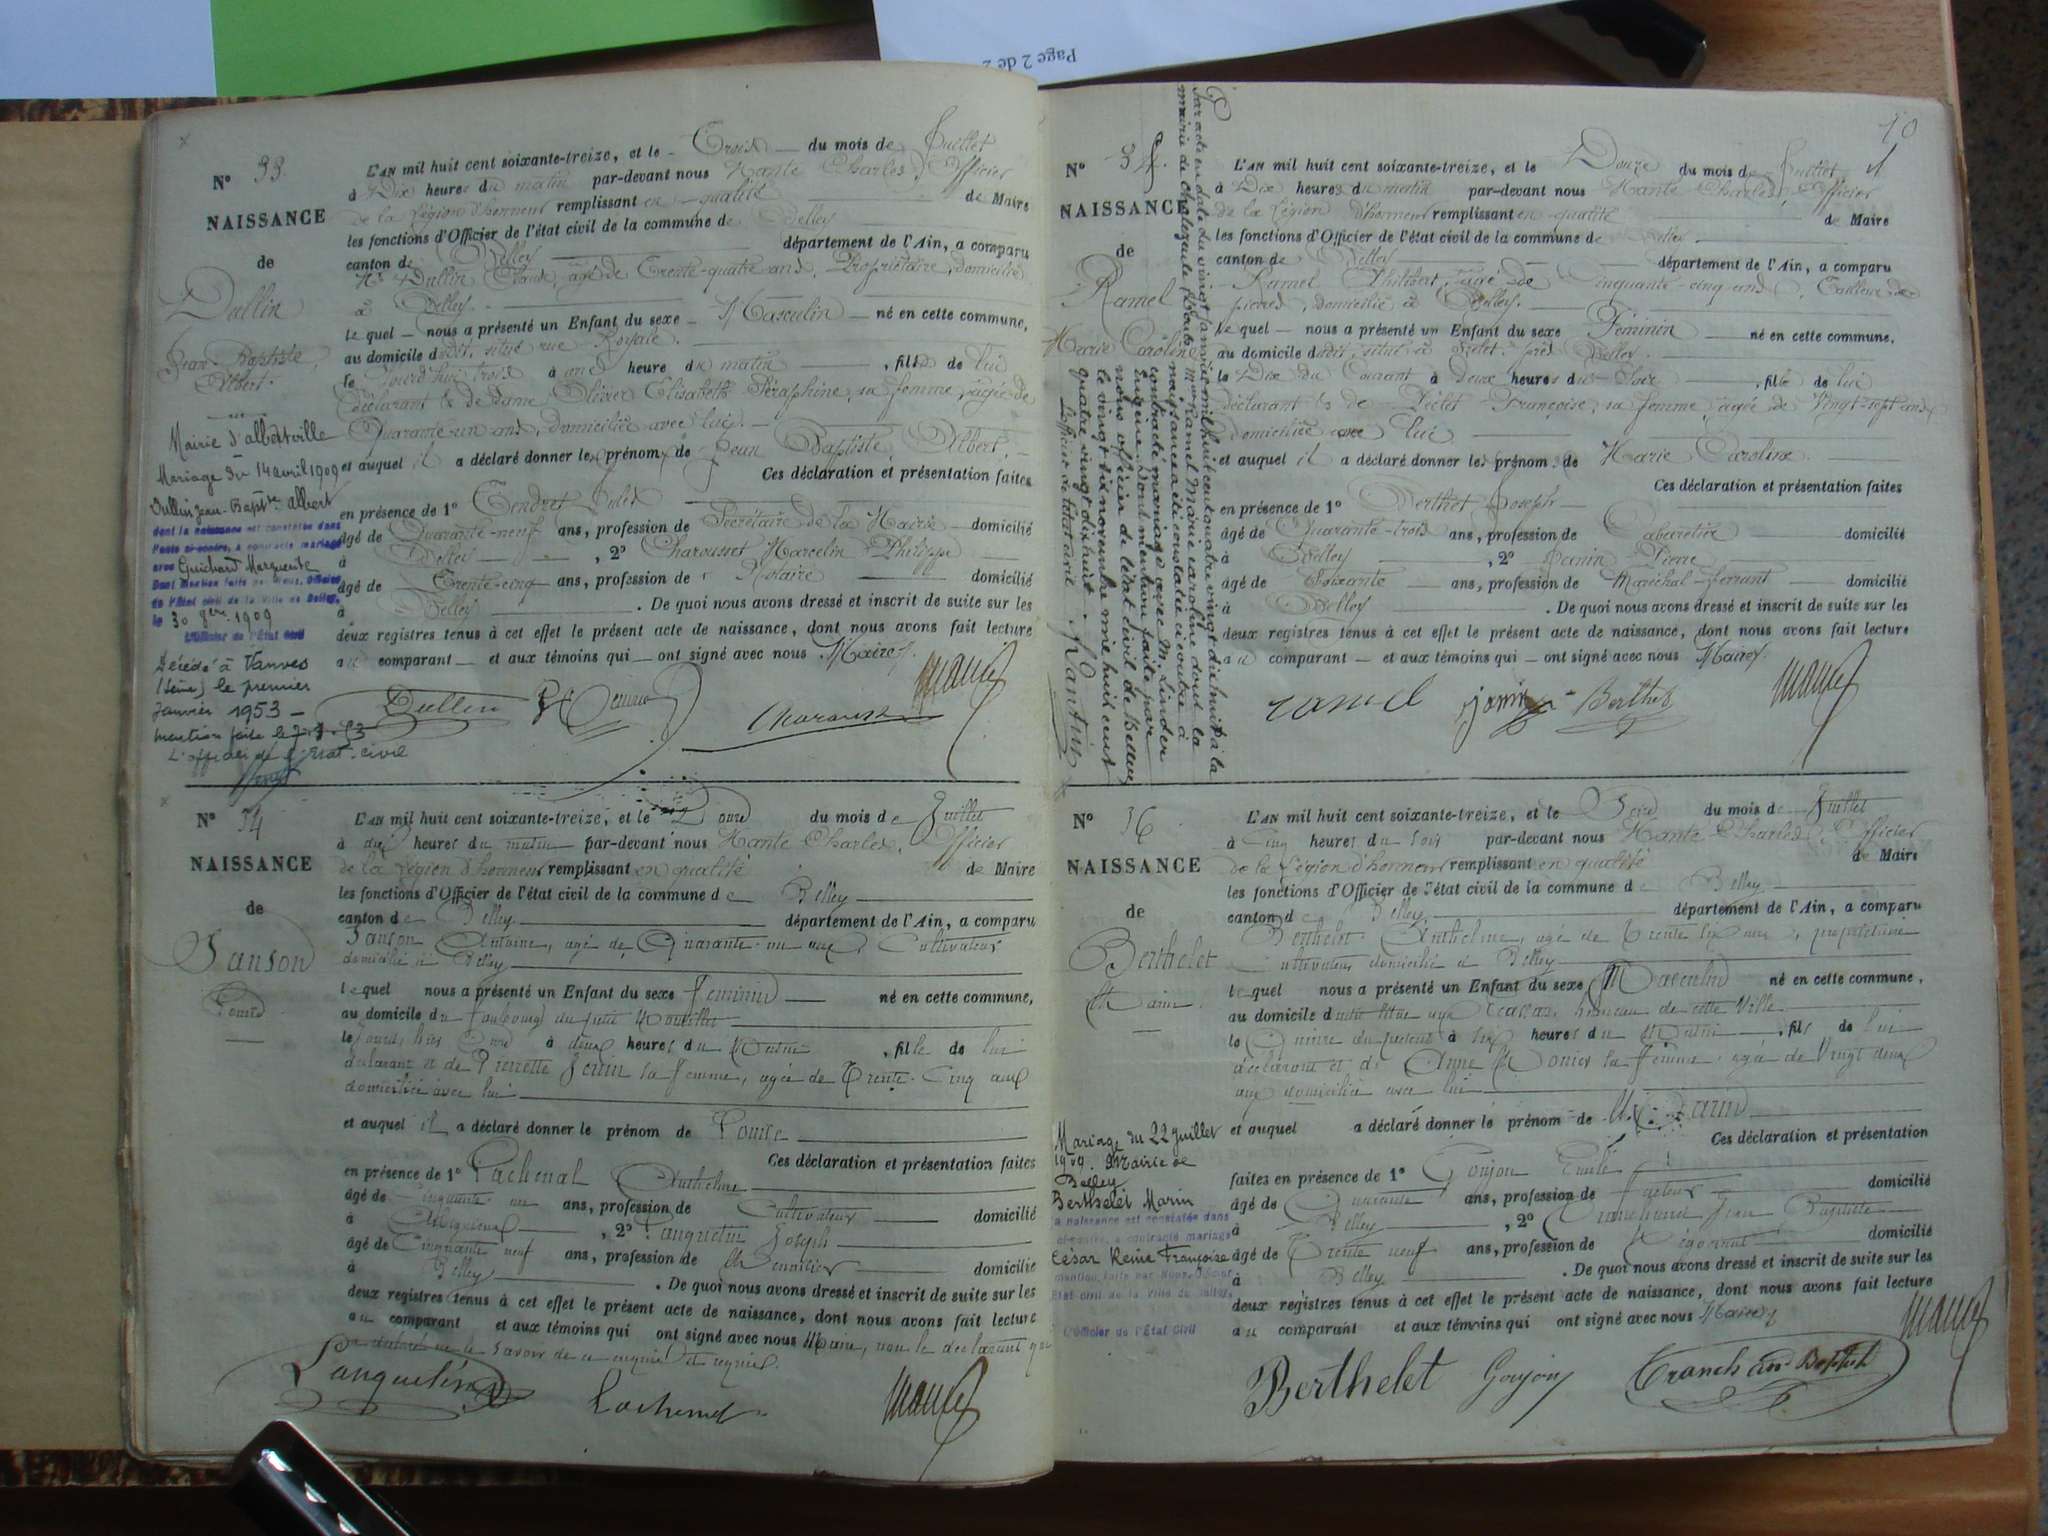 Page 2 de 2
N° 33.
NAISSANCE
de
Dullin
Jean-Baptiste
Albert.
Mairie d'albertville
Mariage du 14 avril 1909
Dullin Jean-Bapte Albert
dont la naissance est constatée dans
l'acte ci-contre, a contracté mariage
avec Guichard Marguerite
Dont mention faite par Nous, Officier
de l'État civil de la Ville de Belley,
le 30 9bre 1909
L'Officier de l'État Civil
Décédé à Vanves
(Seine) le premier
Janvier 1953 –
mention faite le
L'officier de l'Etat-civil
L'AN mil huit cent soixante-treize, et le Trois du mois de Juillet
à Dix heures du matin par-devant nous Charles, Officier
de la Légion d'honneur remplissant en qualité de Maire
les fonctions d'Officier de l'état civil de la commune de Belley
canton de Belley département de l'Ain, a comparu
Mr Dullin Claude, âgé de Trente-quatre ans, Propriétaire, domicilié
à Belley.
le quel nous a présenté un Enfant du sexe Masculin né en cette commune,
au domicile dudit, situé rue Royale.
le jourd'hui trois à une heure du matin, fils de lui
déclarant & de dame Olivier Elisabeth Séraphine, sa femme, âgée de
Quarante-un ans, domiciliée avec lui.
et auquel il a déclaré donner les prénoms de Jean Baptiste Albert.
Ces déclaration et présentation faites
en présence de 1° Tendret
âgé de Quarante-neuf ans, profession de Secrétaire de la Mairie domicilié
à Belley, 2° Charousset Marcelin Philippe
âgé de Trente-cinq ans, profession de Notaire domicilié
à Belley. De quoi nous avons dressé et inscrit de suite sur les
deux registres tenus à cet effet le présent acte de naissance, dont nous avons fait lecture
au comparant et aux témoins qui ont signé avec nous Maire.
Dullin
N° 34
NAISSANCE
de
Janson
Louise
L'AN mil huit cent soixante-treize, et le Douze du mois de Juillet
à dix heures du matin par-devant nous Charles, Officier
de la Légion d'honneur remplissant en qualité de Maire
les fonctions d'Officier de l'état civil de la commune de Belley
canton de Belley département de l'Ain, a comparu
Janson Antoine, âgé de Quarante un ans, Cultivateur
domicilié à Belley
lequel nous a présenté un Enfant du sexe Feminin né en cette commune,
au domicile du faubourg du
à deux heures du matin, fille de lui
déclarant et de Pierrette sa femme, agée de Trente-Cinq ans
domiciliée avec lui
et auquel il a déclaré donner le prénom de Louise
Ces déclaration et présentation faites
en présence de 1° Lachenal Anthelme
âgé de Cinquante un ans, profession de Cultivateur domicilié
à , 2° Joseph
âgé de Cinquante neuf ans, profession de Menuisier domicilié
à Belley. De quoi nous avons dressé et inscrit de suite sur les
deux registres tenus à cet effet le présent acte de naissance, dont nous avons fait lecture
au comparant et aux témoins qui ont signé avec nous Maire, non le déclarant
savoir de ce enquis et requis.
10
N°
NAISSANCE
de
Ramel
Marie Caroline
Par acte en date du vingt janvier mil huit cent quatre vingt dix huit à la
mairie de
Ramel Marie Caroline dont la
naissance a été constatée ci contre à
contracté mariage avec M. Linder
Eugène. Dont mention faite par
nous officier de l'état civil de Belley
le vingt six novembre mil huit cent
quatre vingt dix huit
L'officier de l'état civil
L'AN mil huit cent soixante-treize, et le Douze du mois de Juillet
à Dix heures du matin par-devant nous Charles, Officier
de la Légion d'honneur remplissant en qualité de Maire
les fonctions d'Officier de l'état civil de la commune de Belley
canton de Belley département de l'Ain, a comparu
Ramel Philibert, âgé de Cinquante-cinq ans, Tailleur de
pierres, domicilié à Belley.
le quel nous a présenté un Enfant du sexe Féminin né en cette commune,
au domicile dudit, situé à près Belley.
le Dix du Courant à Deux heures du Soir, fille de lui
déclarant & de Françoise, sa femme, âgée de Vingt-sept ans
domiciliée avec lui
et auquel il a déclaré donner les prénoms de Marie Caroline
Ces déclaration et présentation faites
en présence de 1° Berthet Joseph
âgé de Quarante-trois ans, profession de Cabaretier domicilié
à Belley, 2° Janin Pierre
âgé de Soixante ans, profession de Maréchal-ferrant domicilié
à Belley. De quoi nous avons dressé et inscrit de suite sur les
deux registres tenus à cet effet le présent acte de naissance, dont nous avons fait lecture
au comparant et aux témoins qui ont signé avec nous Maire.
ramel janin Berthet
N° 36
NAISSANCE
de
Berthelet
Marin
Mariage du 22 Juillet
1909. Mairie de
Belley
Berthelet Marin
la naissance est constatée dans
ci-contre, a contracté mariage
César Reine Françoise
mention faite par Nous, Officier
Etat civil de la Ville de Belley,
L'Officier de l'État Civil
L'AN mil huit cent soixante-treize, et le Seize du mois de Juillet
à Cinq heures du soir par-devant nous Charles, Officier
de la Légion d'honneur remplissant en qualité de Maire
les fonctions d'Officier de l'état civil de la commune de Belley
canton de Belley département de l'Ain, a comparu
Berthelet Anthelme, agé de Trente six ans, propriétaire
Cultivateur domicilié à Belley
lequel nous a présenté un Enfant du sexe Masculin né en cette commune,
au domicile hameau de cette Ville
le Quinze du présent à six heures du Matin, fils de lui
déclarant et de Anne sa femme agée de Vingt deux
ans domiciliée avec lui
et auquel a déclaré donner le prénom de Marin
Ces déclaration et présentation
faites en présence de 1° Goujon Emile
âgé de Quarante ans, profession de facteur domicilié
à Belley, 2° Jean Baptiste
âgé de Trente neuf ans, profession de domicilié
à Belley. De quoi nous avons dressé et inscrit de suite sur les
deux registres tenus à cet effet le présent acte de naissance, dont nous avons fait lecture
au comparant et aux témoins qui ont signé avec nous Maire
Berthelet Goujon